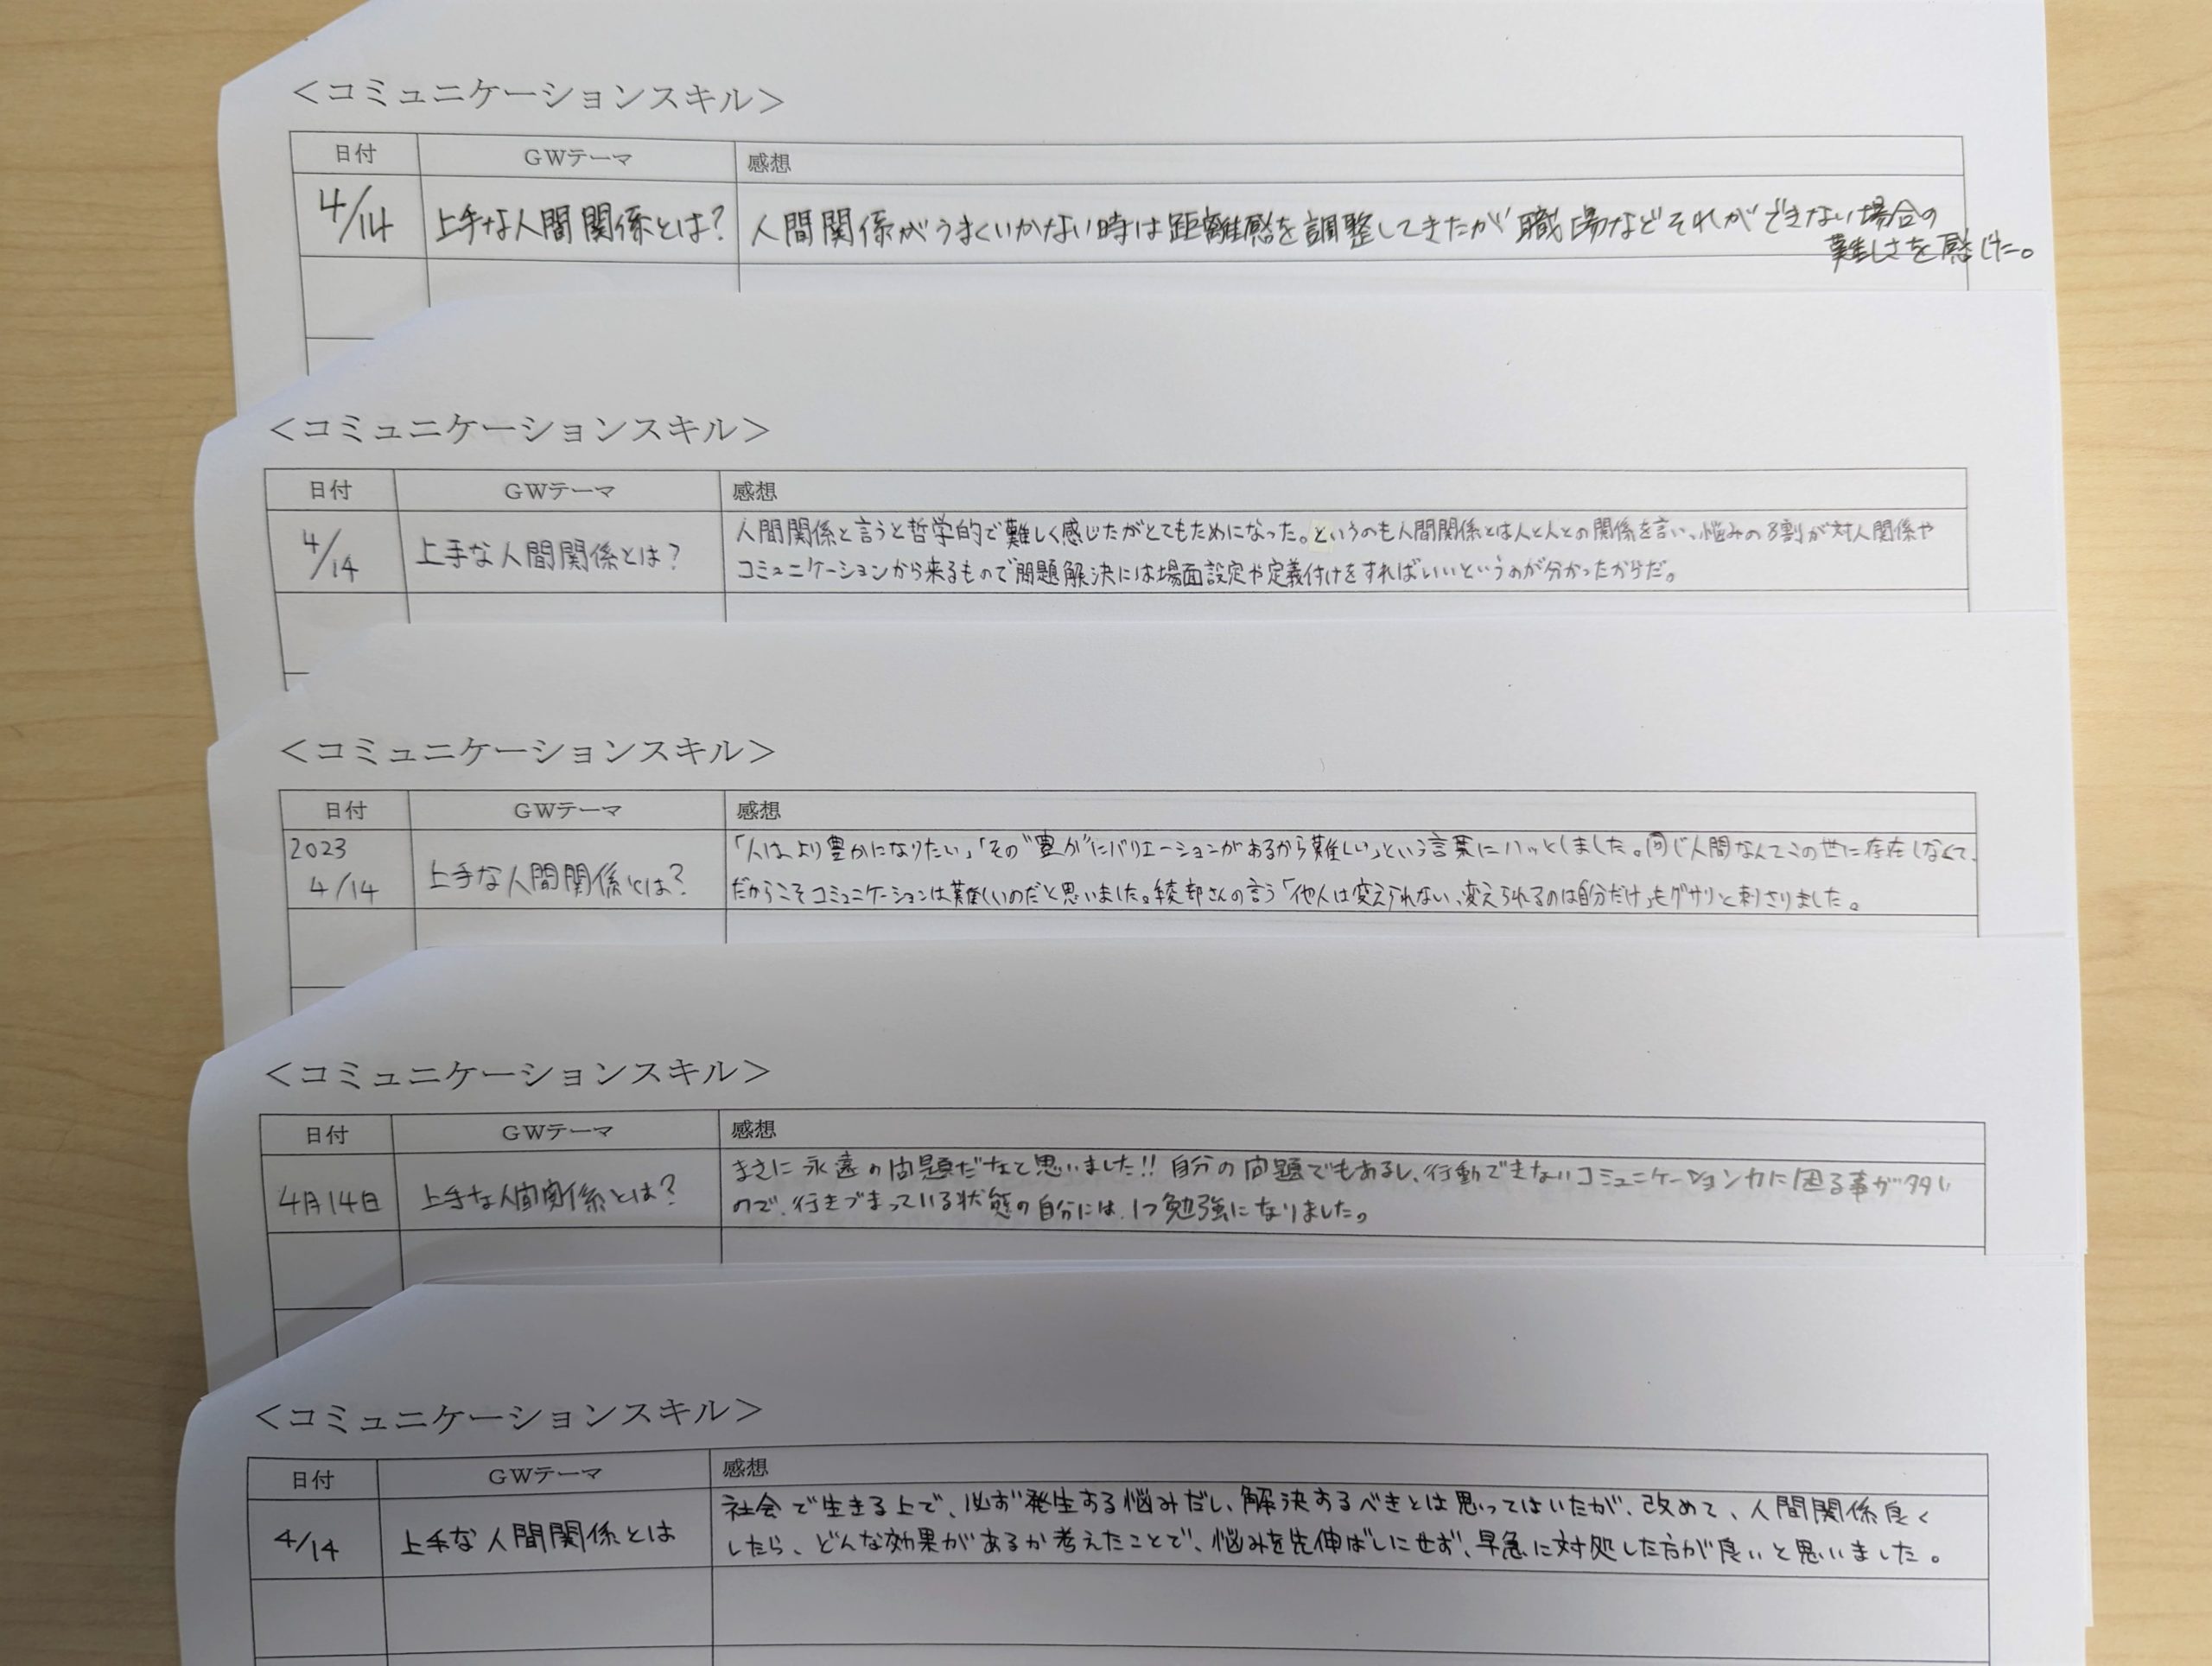 ＜コミュニケーションスキル＞
日付 GWテーマ 感想
4/14 上手な人間関係とは? 人間関係がうまくいかない時は距離感を調整してきたが職場などそれができない場合の
難しさを感じた。
＜コミュニケーションスキル＞
日付 GWテーマ 感想
4/14 上手な人間関係とは? 人間関係と言うと哲学的で難しく感じたがとてもためになった。というのも人間関係とは人と人との関係を言い、悩みの8割が対人関係や
コミュニケーションから来るもので問題解決には場面設定や定義付けをすればいいというのが分かったからだ。
＜コミュニケーションスキル＞
日付 GWテーマ 感想
2023
4/14 上手な人間関係とは? 「人はより豊かになりたい」「その"豊か"にバリエーションがあるから難しい」という言葉にハッとしました。同じ人間なんてこの世に存在しなくて、
だからこそコミュニケーションは難しいのだと思いました。綾部さんの言う「他人は変えられない、変えられるのは自分だけ」もグサリと刺さりました。
＜コミュニケーションスキル＞
日付 GWテーマ 感想
4月14日 上手な人間関係とは? まさに永遠の問題だなと思いました!! 自分の問題でもあるし、行動できないコミュニケーション力に困る事が多い
ので、行きづまっている状態の自分には、1つ勉強になりました。
＜コミュニケーションスキル＞
日付 GWテーマ 感想
4/14 上手な人間関係とは 社会で生きる上で、必ず発生する悩みだし、解決するべきとは思ってはいたが、改めて、人間関係良く
したら、どんな効果があるか考えたことで、悩みを先伸ばしにせず、早急に対処した方が良いと思いました。